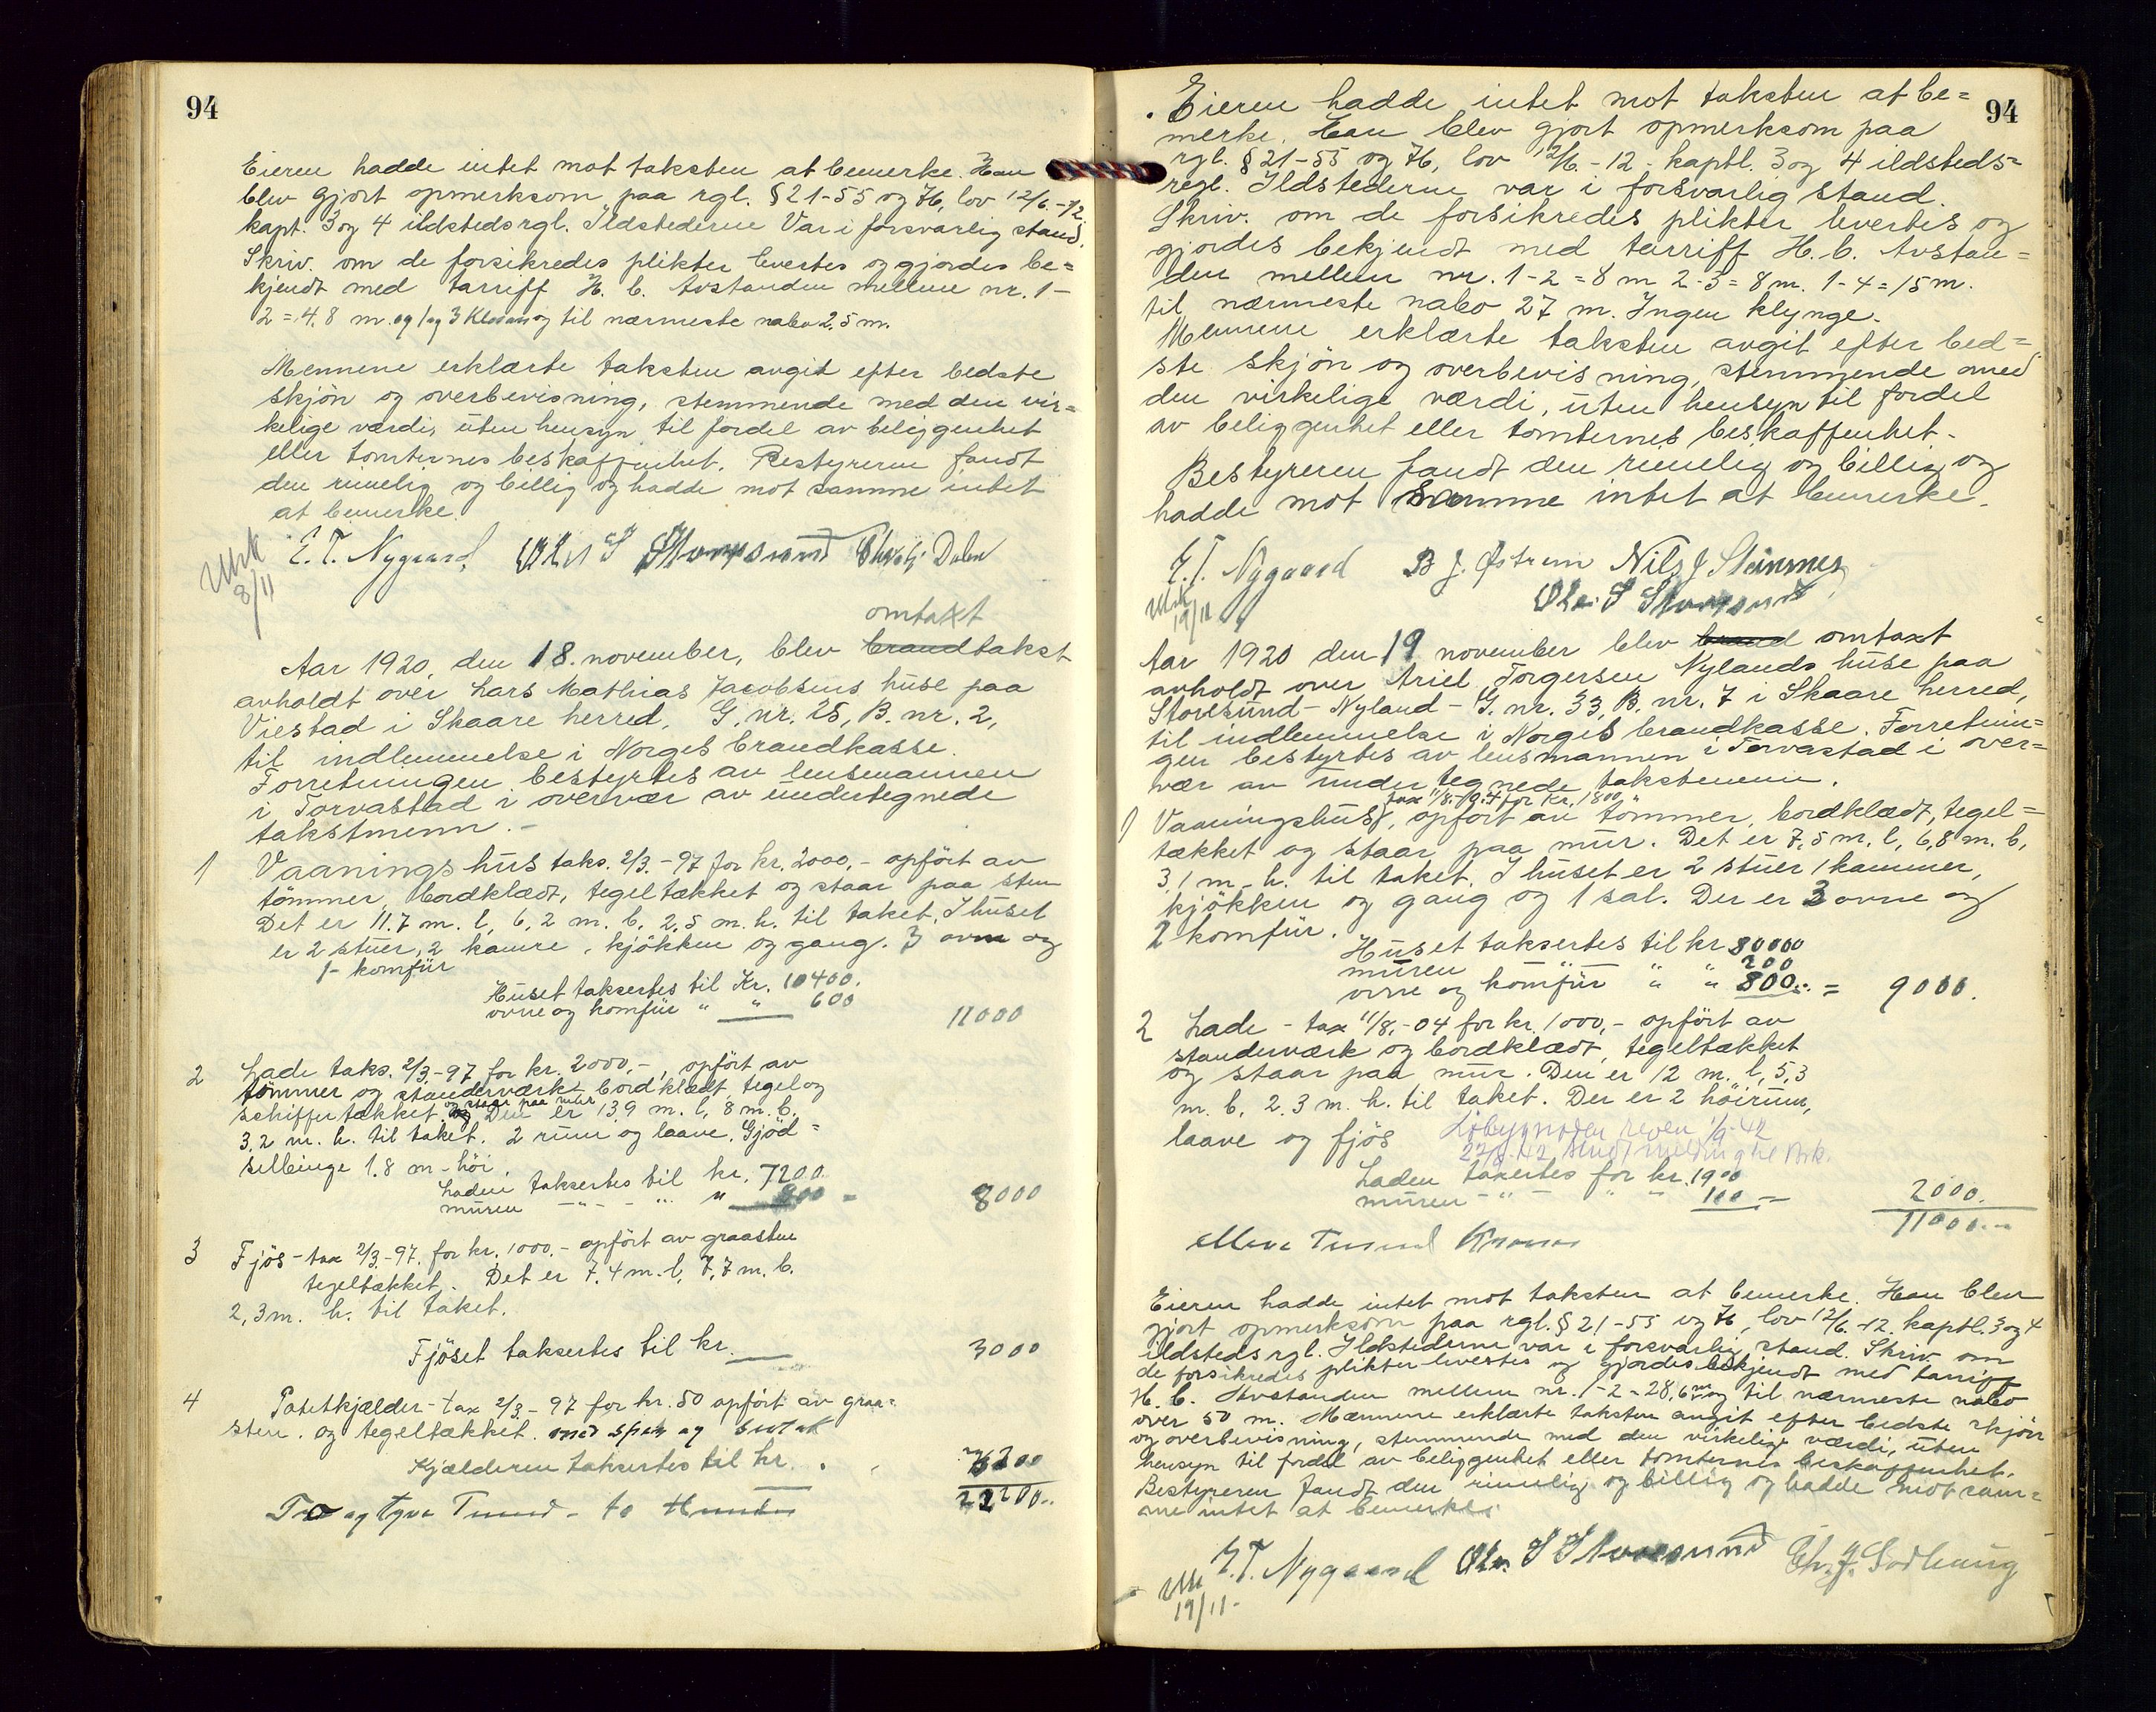 94
Eieren hadde intet mot taksten at bemerke. Han
blev gjort opmerksom paa rgl. § 21-55 og 76, lov 12/6.-12.
kapt. 3 og 4 ildstedsrgl. Ildstederne var i forsvarlig stand.
Skriv. om de forsikredes plikter levertes og gjordes be=
kjendt med tarriff H. b. Avstanden mellem nr. 1-
2 = 4,8 m. og 1 og 3 og til nærmeste nabo 2,5 m.
Mennene erklærte taksten avgit efter bedste
skjön og overbevisning, stemmende med den vir=
kelige værdi, uten hensyn til fordel av beliggenhet
eller tomternes beskaffenhet. Bestyreren fandt
den rimelig og billig og hadde mot samme intet
at bemerke.
E. T. Nygaard, Ole S Storesund Dalen
Utsk
8/11
omtaxt
Aar 1920, den 18. november, blev brandtakst
avholdt over Lars Mathias Jacobsens huse paa
Viestad i Skaare herred, G. nr. 25, B. nr. 2,
til indlemmelse i Norges brandkasse.
Forretningen bestyrtes av lensmannen
i Torvastad i overvær av undertegnede
takstmenn.-
1 Vaaningshus taks. 2/3.-97 for kr. 2000,- opfört av
tömmer, bordklædt, tegeltækket og staar paa sten
Det er 11.7 m. l, 6,2 m. b, 2,5 m. h. til taket. I huset
er 2 stuer, 2 kamre, kjökken og gang. 3 ovne og
1- komfür
Huset taksertes til Kr. 10400.
ovne og komfür " " 600 11000
2 Lade taks. 2/3.-97 for kr. 2000,-, opfört av
tömmer og standerværk bordklædt, tegel og
schiffertækket og staar paa mur Den er 13,9 m. l, 8 m. b,
3,2 m. h. til taket. 2 rum og laave. Gjöd=
selbinge 1.8 m - höi.
Laden taksertes til kr. 7200
muren - " - " " 800 = 8000
3 Fjös - tax 2/3.-97. for kr. 1000.- opfört av graasten
tegeltækket. Det er 7.4 m. l, 7,7 m. b.
2,3 m. h. til taket.
Fjöset taksertes til kr. 3000
4 Potetkjælder - tax 2/3.-97 for kr. 50 opfört av graa=
sten. og tegeltækket. med
Kjælderen taksertes til kr. 200
To og tyve Tusend - to Hundre 22200..
94
Eieren hadde intet mot taksten at be=
merke. Han blev gjort opmerksom paa
rgl. § 21-55 og 76, lov 12/6.-12.- kaptl. 3 og 4 ildsteds=
regl. Ildstederne var i forsvarlig stand.
Skriv. om de forsikredes plikter levertes og
gjordes bekjendt med tarriff H. b. Avstan=
den mellem nr. 1-2 = 8 m 2-3 = 8 m. 1-4 = 15 m.
til nærmeste nabo 27 m. Ingen klynge.
Mennene erklærte taksten avgit efter bed=
ste skjön og overbevisning, stemmende med
den virkelige værdi, uten hensyn til fordel
av beliggenhet eller tomternes beskaffenhet.
Bestyreren fandt den rimelig og billig og
hadde mot samme intet at bemerke.
E. T. Nygaard B J. Østrem Nils J Steinnes
Ole S Storesund
Utsk
19/11
Aar 1920 den 19 november blev brand omtaxt
avholdt over Ariel Torgersen Nylands huse paa
Storesund - Nyland - G. nr. 33, B. nr. 7 i Skaare herred,
til indlemmelse i Norges brandkasse. Forretnin=
gen bestyrtes av lensmannen i Torvastad i over=
vær av undertegnede takstmenn.
tax 11/8.-04 for kr. 1800
1 Vaaningshus, opfört av tömmer, bordklædt, tegel=
tækket og staar paa mur. Det er 7,5 m. l, 6,8 m. b,
3,1 m - h. til taket. I huset er 2 stuer 1 kammer,
kjökken og gang og 1 sal. Der er 3 ovne og
2 komfür.
Huset taksertes til kr 8000
muren 200
ovne og komfür " " 800.. = 9000.
2 Lade - tax 11/8.-04 for kr. 1000,- opfört av
standerværk og bordklædt, tegeltækket
og staar paa mur. Den er 12 m. l, 5,3
m. b, 2.3 m. h. til taket. Der er 2 höirum,
laave og fjös Løbygnogen reven 1/9-42
Laden taksertes for kr. 1900
muren - " - " - 100 = 2000.
11000.-
elleve Tusend Kroner
Eieren hadde intet mot taksten at bemerke. Han blev
gjort opmerksom paa rgl. § 21-55 og 76, lov 12/6.-12. kaptl. 3 og 4
ildstedsrgl. Ildstederne var i forsvarlig stand. Skriv. om
de forsikredes plikter levertes og gjordes bekjendt med tarriff
H. b. Avstanden mellem nr. 1-2 = 28,6 m og til nærmeste nabo
over 50 m. Mænnene erklærte taksten avgit efter bedste skjön
og overbevisning, stemmende med den virkelige værdi, uten
hensyn til fordel av beliggenhet eller tomternes beskaffenhet.
Bestyreren fandt den rimelig og billig og hadde mot sam=
me intet at bemerke.
E. T. Nygaard Ole S Storesund Chr. J. Sørhaug
Utsk
19/11-